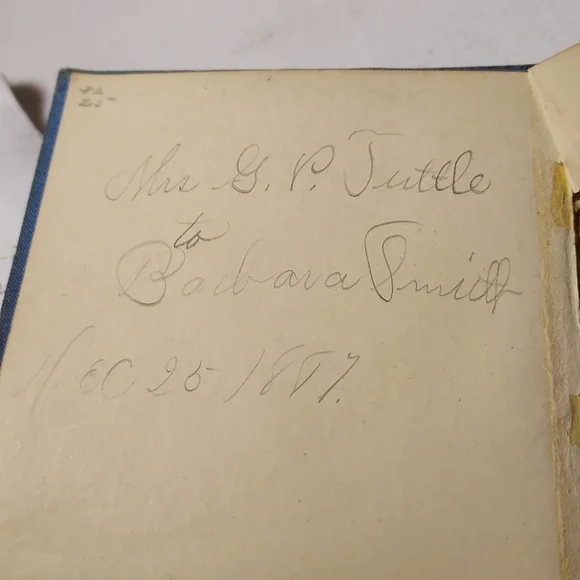 Mrs G. P. Tuttle
to
Barbara Smith
Dec 25 1887.